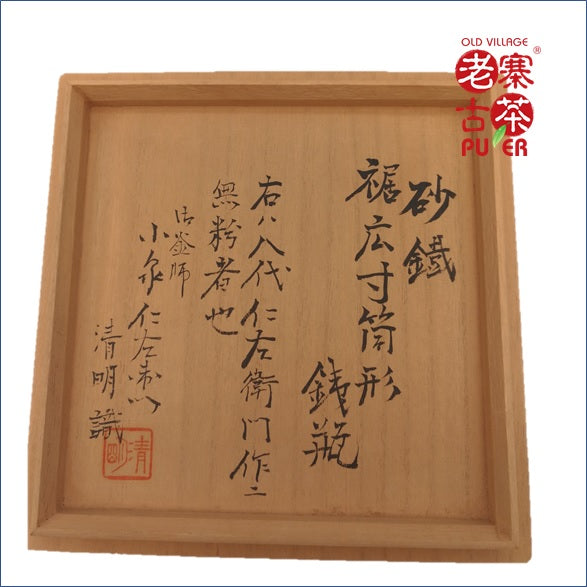 OLD VILLAGE
老寨
古茶
PU ER
®
砂鐵
裾広寸筒形
鉄瓶
右ハ八代仁右衛門作ニ
無粉者也
御釜師
小泉仁左衛門
清明識
清明